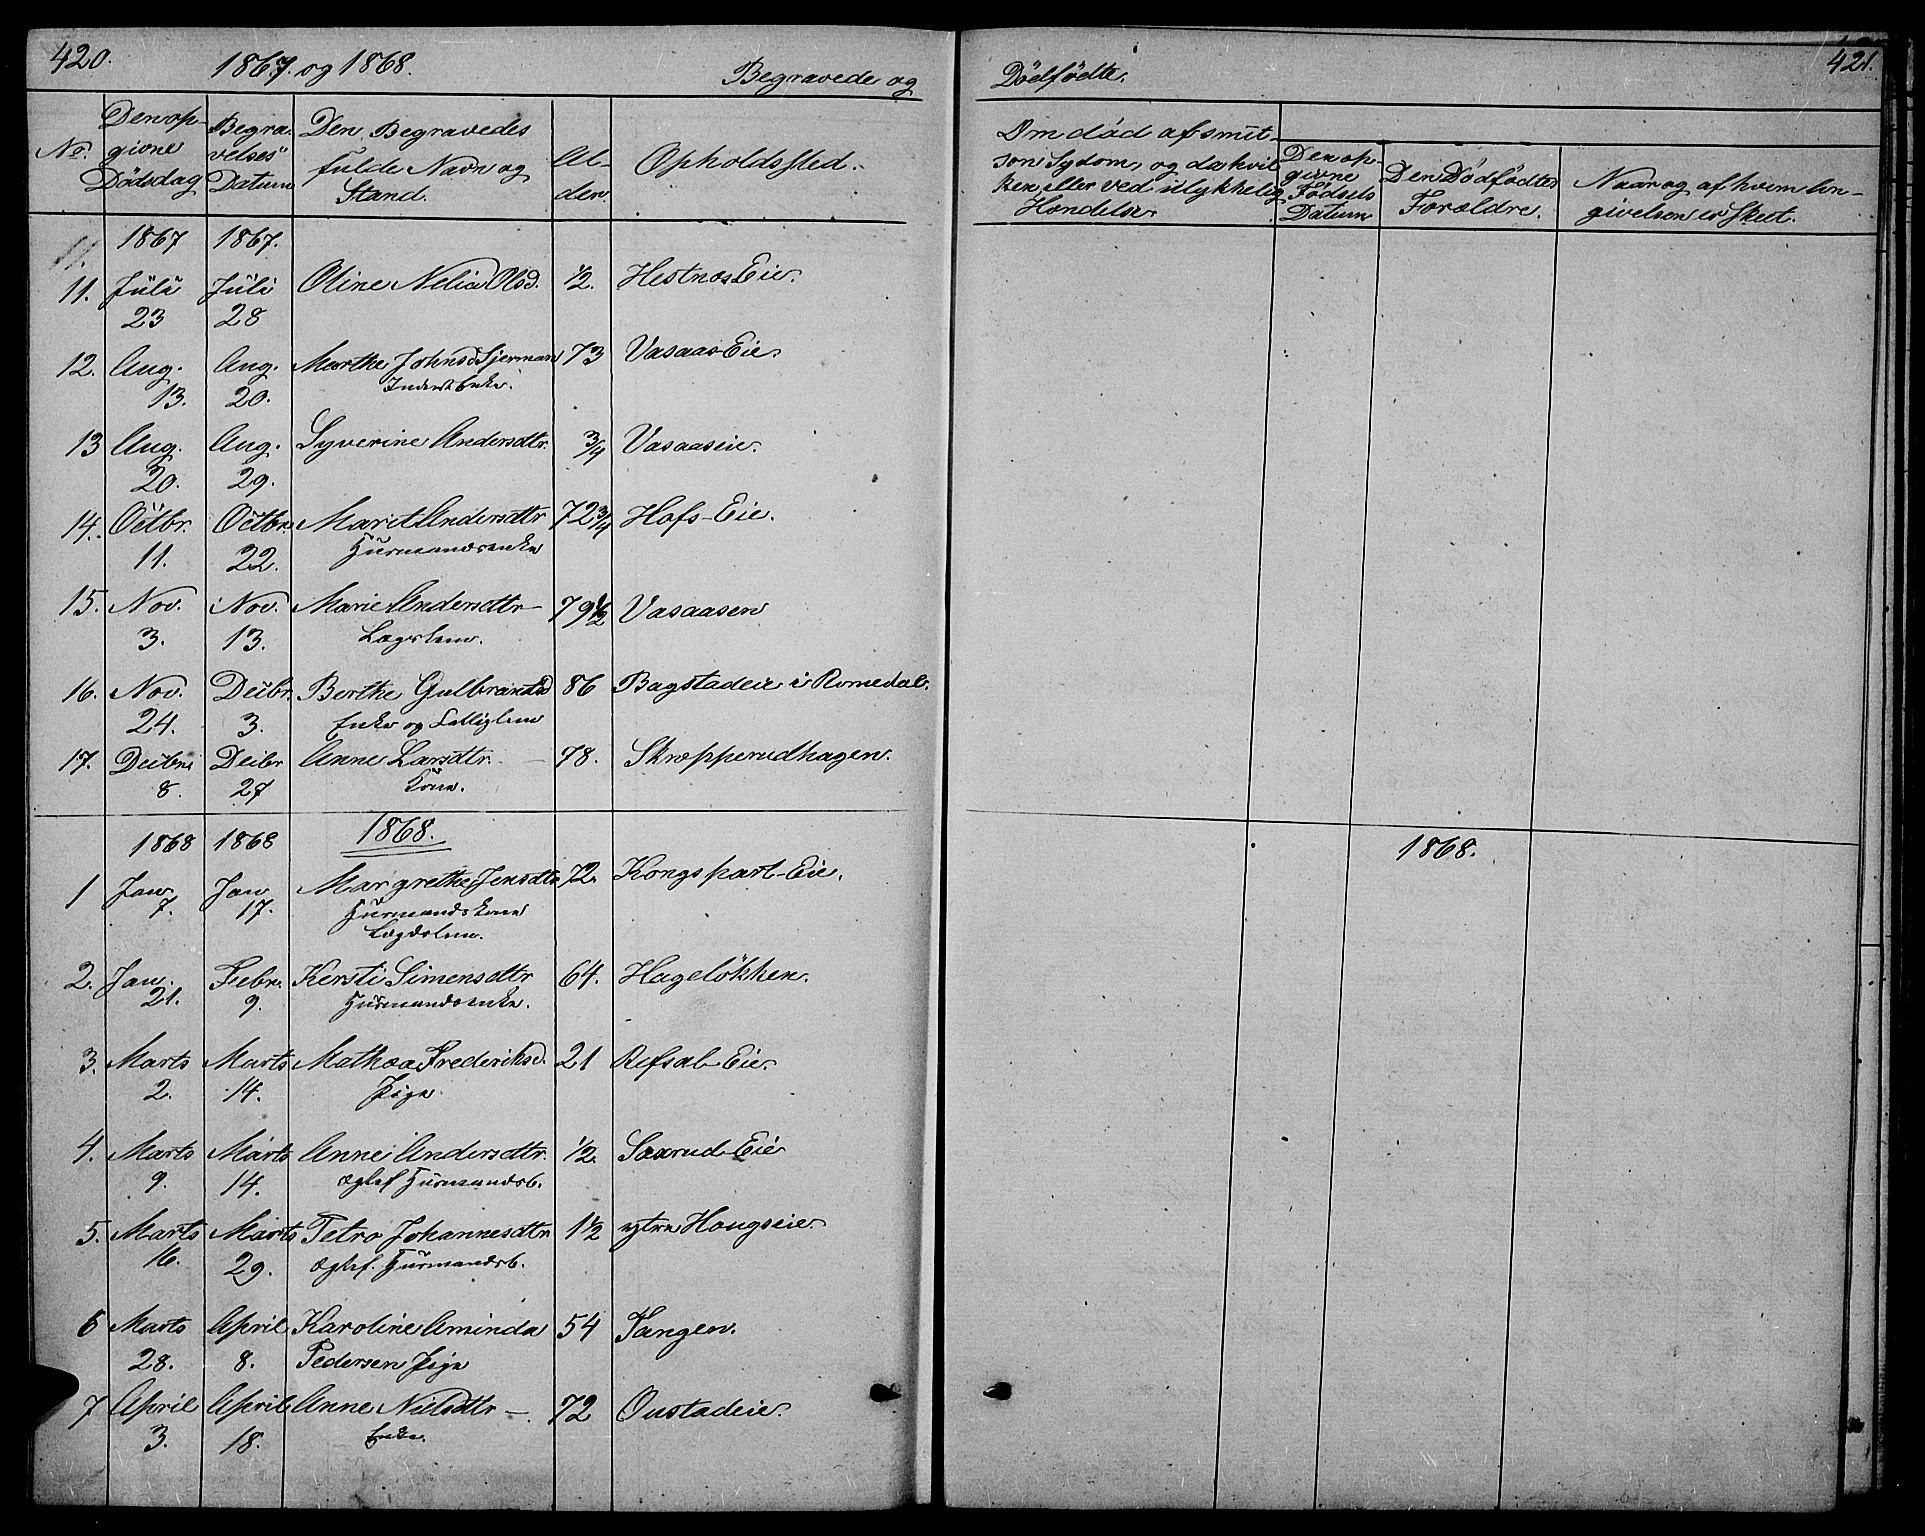 420. 1867. og 1868. Begravede og
No. Den opgivne Dödsdag Begravelses Datum Den Begravedes fulde Navn og Stand. Alder. Opholdssted.
1867 1867.
11. Juli 23 Juli 28 Oline Nelia Olsd. 1/2. Hestnæs Eie.
12. Aug. 13. Aug. 20. Marthe Johnsd. 73 Vasaas-Eie.
Inderst Enke.
13 Aug. 20. Aug. 29. Syverine Andersdtr. 3/4 Vasaaseie.
14. Octbr. 11. Octbr. 22. Marit Andersdtr 72 3/4 Hofs-Eie.
Husmandsenke
15. Nov. 3. Nov. 13. Marie Andersdtr 79 1/2 Vasaasen
Lægslem.
16. Nov. 24. Decbr. 3. Berthe Gulbrandsd 86 Bagstadeie i Romedal.
Enke og Fattiglem
17. Decbr. 8. Decbr 27 Anne Larsdtr. 78. Skræpperudhagen.
Kone.
1868 1868 1868.
1 Jan. 7. Jan. 17. Margrethe Jensdtr 72. Kongspart-Eie.
Husmandskone
Lægdslem.
2. Jan. 21. Febr. 9. Kersti Simensdtr 64. Hageløkken.
Husmandsenke.
3. Marts 2. Marts 14. Mathea Frederiksd. 21 Refsal-Eie.
Pige
4. Marts 9. Marts 14. Anne Andersdtr. 1/2. Saxrud-Eie
ægtef. Husmandsb.
5. Marts 16. Marts 29. Petra Johannesdtr 1 1/2 ytre Hougseie
ægtef. Husmandsb.
6 Marts 28. April 8. Karoline Aminda 54 Tangen.
Pedersen Pige
7 April 3. April 18. Anne Nielsdtr 72 Oustadeie.
Enke.
Dödfødte. 421.
Om död af smitsom Sygdom, og da hvilken eller ved ulykkelig Hændelse.
Den opgivne Födsels Datum
Den Dödfödtes Forældre.
Naar og af hvem Angivelsen er skeet.
1868.